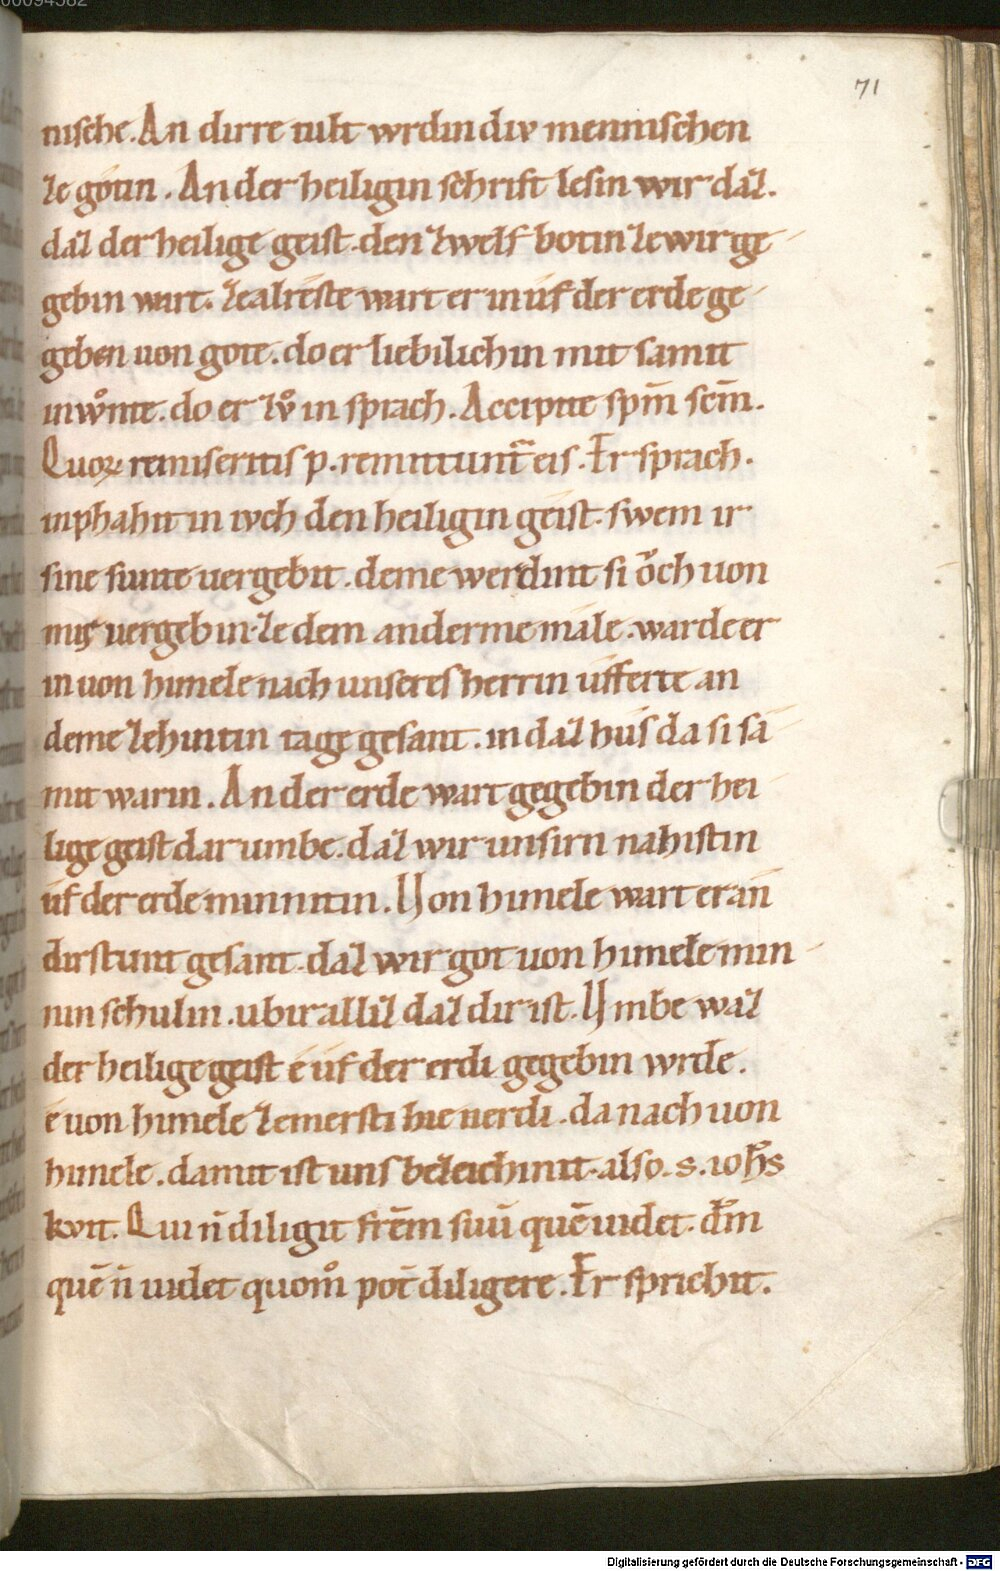 00094582
71
nische. An dirre tult wrdin div mennischen
ze gotin. An der heiligin schrift lesin wir daz.
daz der heilige geist. den zwelf botin ze wir ge
gebin wart. ze alreste wart er in uf der erde ge
geben uon gote. do er liebilich in mit samit
in wͦnte. do er zͦ in sprach. Accipite spm̄ scm̄.
Quoꝝ remiseritis p. remittunt᷑ eis. Er sprach.
inphahit in ivch den heiligin geist. swem ir
sine sunte uergebit. deme werdint si oͮch uon
mir uergebin. ze dem anderme male. warde er
in uon himele nach unseres herrin ufferte an
deme zehintin tage gesant. in daz hus da si sā
mit warin. An der erde wart gegebin der hei
lige geist dar umbe. daz wir unsirn nahistin
uf der erde minnitin. Uon himele wart er an
dirstunt gesant. daz wir got uon himele min
nin schulin. ubir alliz daz dir ist. Umbe waz
der heilige geist e uf der erdi gegebin wrde.
e uon himele zemersti hie nerdi. da nach uon
himele. damit ist uns bezeichinit. also. s. iohs̄
kvit. Qui n̄ diligit frēm suū quē uidet. dm̄
quē n̄ uidet quomͦ pot̄ diligere. Er sprichit.
Digitalisierung gefördert durch die Deutsche Forschungsgemeinschaft - DFG